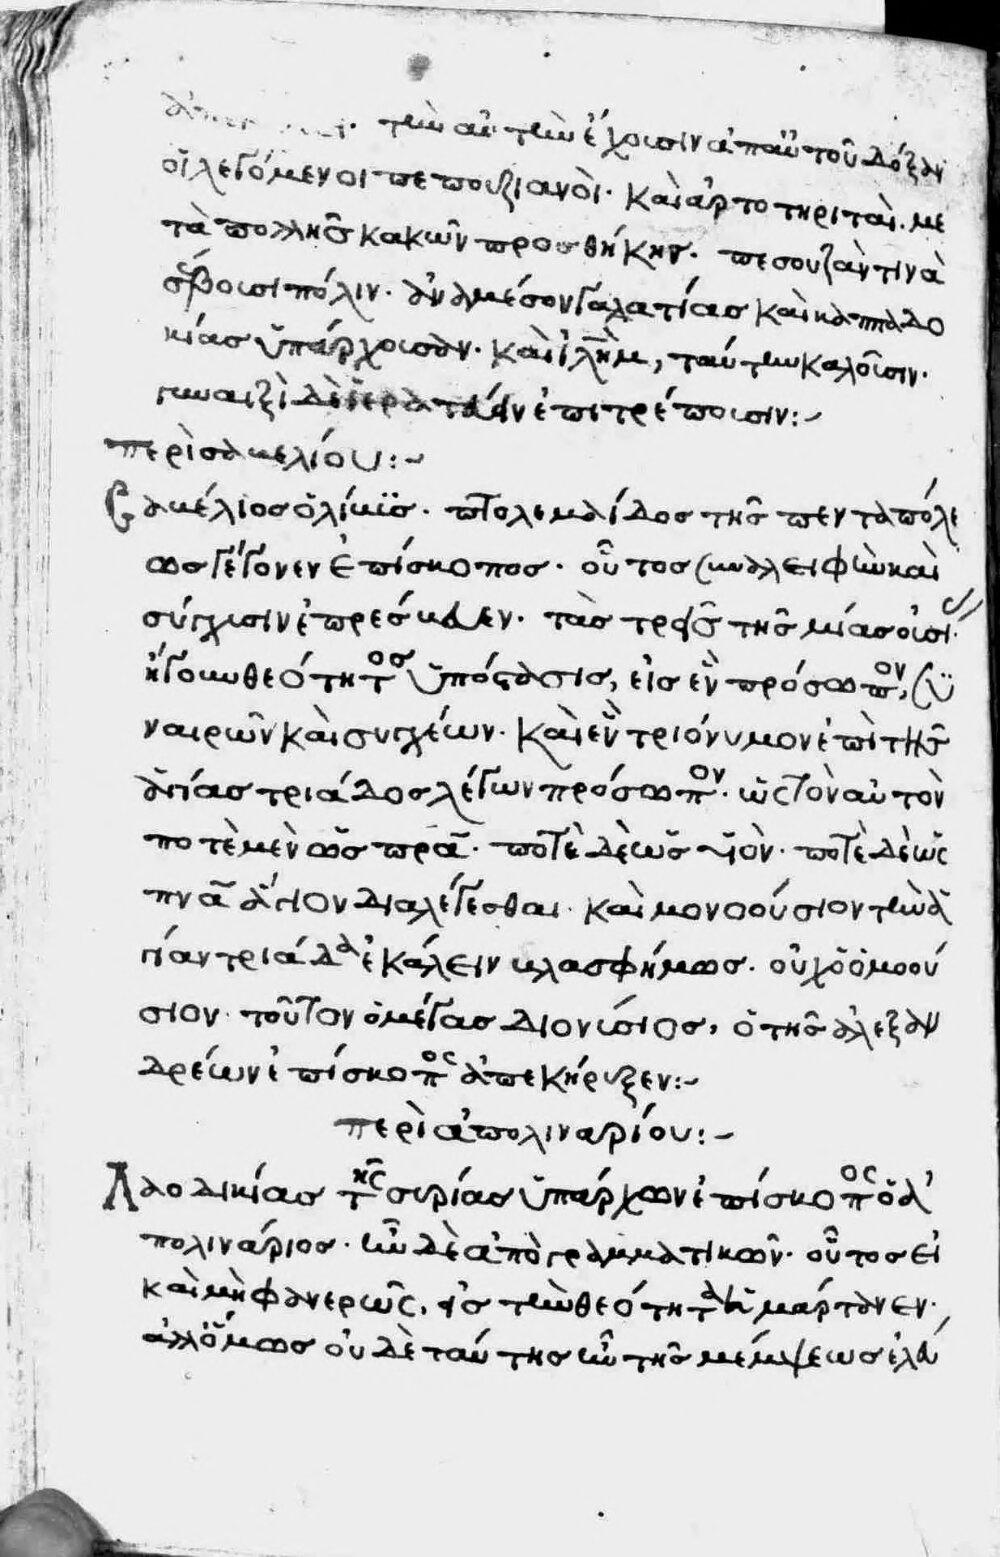 τὴν αὐτὴν ἔχουσιν ἀπαὐτοῦ δόξαν
οἱ λεγόμενοι πεπουζιανοὶ. καὶ ἀρτοτηρῖται. με
τὰ πολλῆς κακῶν προσθήκης. πεσουζὰν τινὰ
σέβουσι πόλιν. ἀναμέσον γαλατίας καὶ καππαδο
κίας ὑπάρχουσαν. καὶ ἱλῆμ, ταύτην καλοῦσιν.
γυναιξὶ δὲ ἱερατεύειν ἐπιτρέπουσιν:~
περὶ σακελίου:~
Σακέλιος ὁ λίβυς. πτολεμαΐδος τῆς πενταπόλε
ως γέγονεν ἐπίσκοπος. οὗτος συναλειφὴν καὶ
σύγχισιν ἐπρέσβαεν. τὰς τρεῖς τῆς μίας οὐσί.
ἤγουν θεότητος ὑπόστασις, εἰς ἓν πρόσωπον, συ
ναιρῶν καὶ συγχέων. καὶ ἓν τριόνυμον ἐπὶ τῆς
ἁγίας τριάδος λέγων πρόσωπον. ὡς τὸν αὐτὸν
ποτὲ μὲν ὡς πρα. ποτὲ δὲ ὡς υἱὸν. ποτὲ δὲ ὡς
πνα ἅγιον διαλέγεσθαι. καὶ μονοούσιον τὴν ἁ
γίαν τριάδα ἐκάλειν βλασφήμως. οὐχ ὁμοού
σιον. τοῦτον ὁ μέγας διονύσιος, ὁ τῆς ἀλεξαν
δρέων ἐπίσκοπος ἀπεκήρυξεν:~
περὶ ἀπολιναρίου:~
Λαοδικίας τῆς συρίας ὑπάρχων ἐπίσκοπος ὁ ἀ
πολινάριος. ἦν δὲ ἀπὸ γραμματικῶν. οὗτος εἰ
καὶ μὴ φανερῶς, εἰς τὴν θεότητα ἡμάρτανεν.
ἀλλόμως οὐδὲ ταύτης ἦν τῆς μέμψεως ἐλεύ